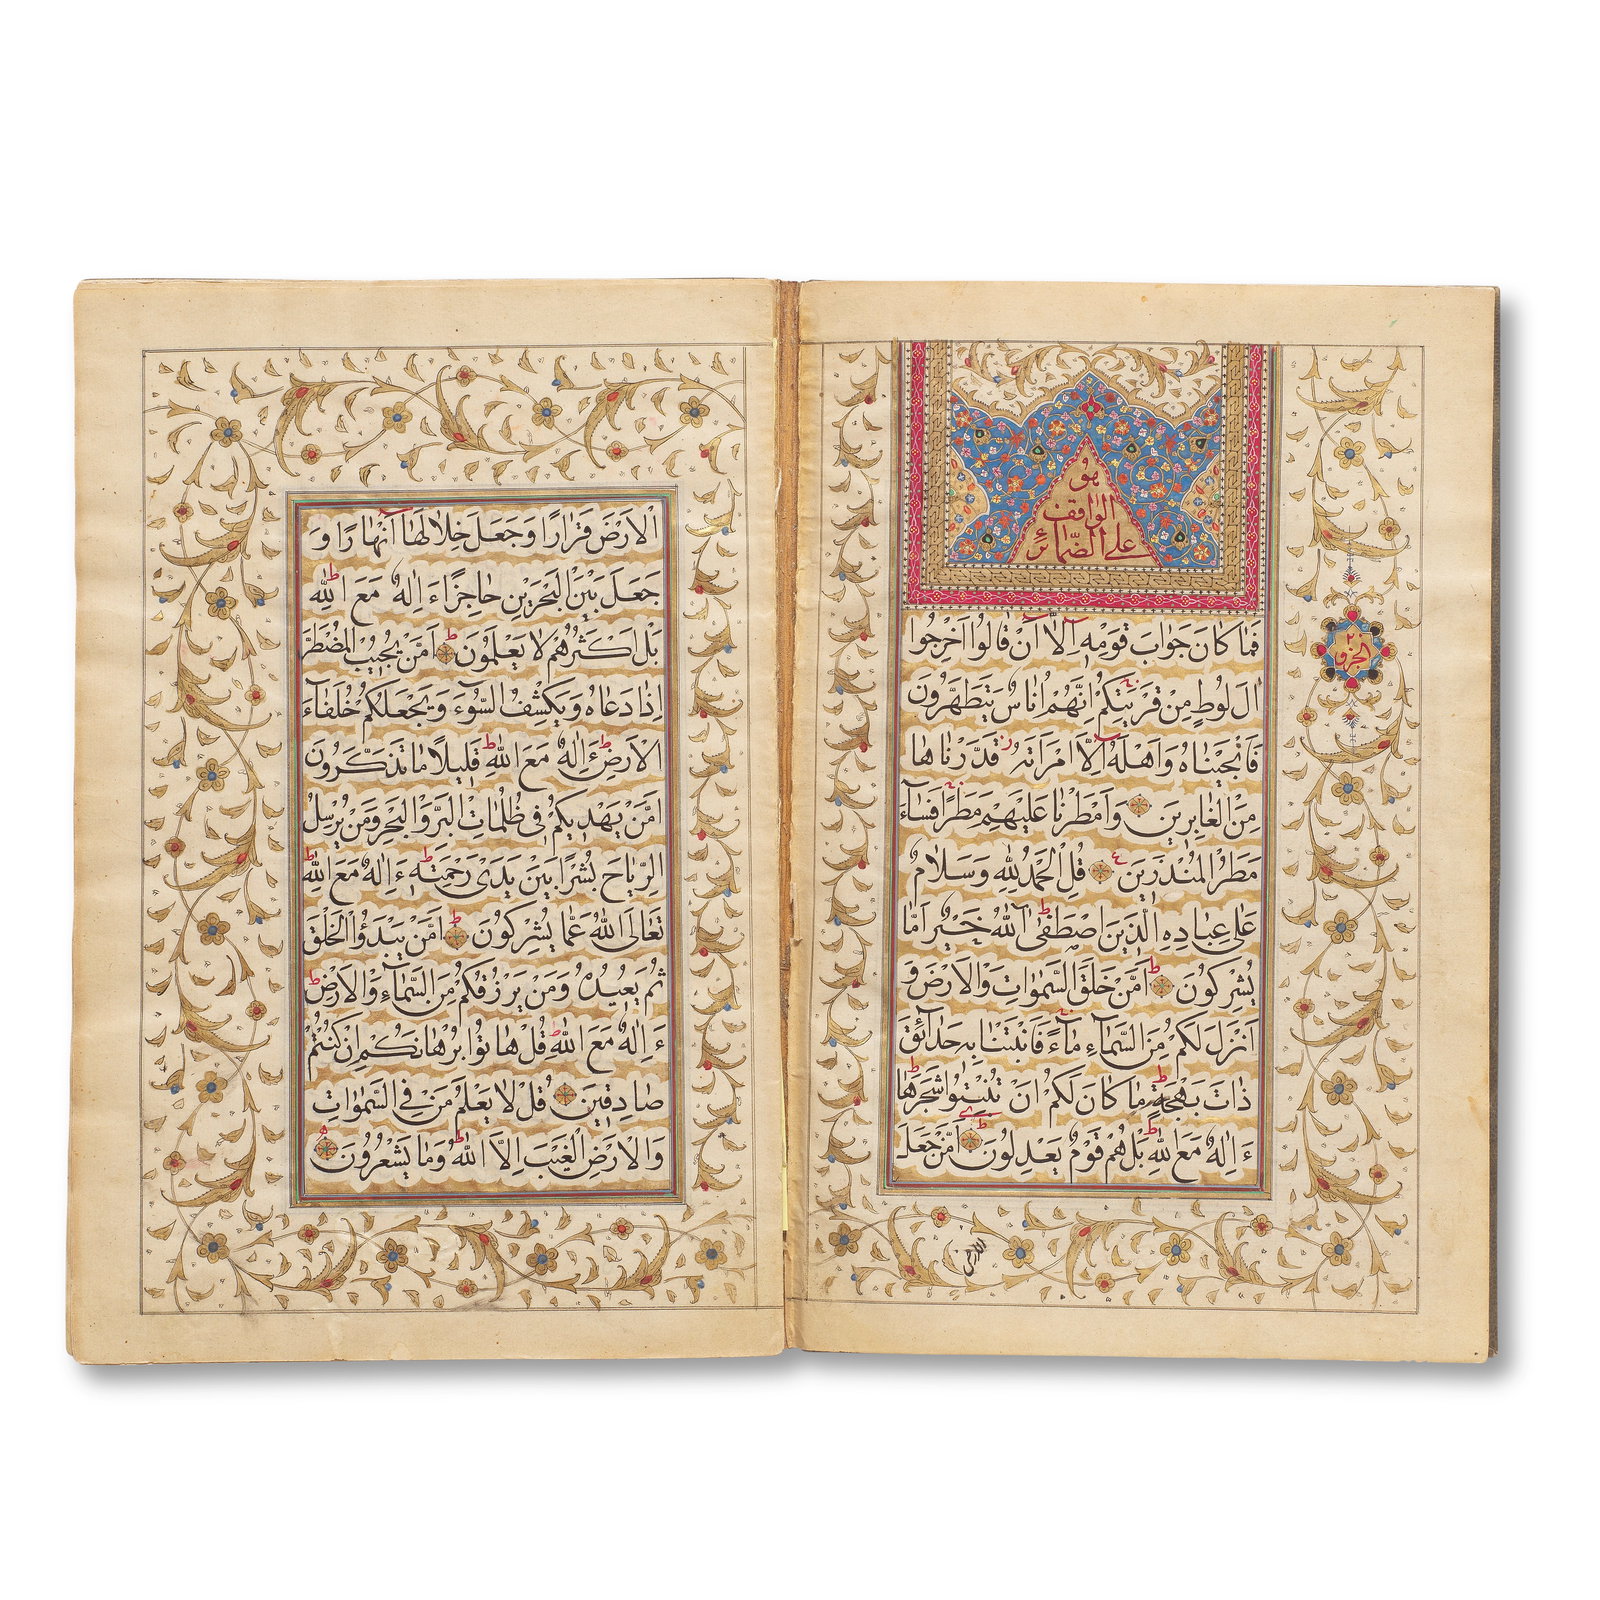 هو
الواقف
على الضمائر
فَمَا كَانَ جَوَابَ قَوْمِهِ اِلَّا اَنْ قَالُوا اَخْرِجُوا
الَ لُوطٍ مِنْ قَرْيَتِكُمْ اِنَّهُمْ اُنَاسٌ يَتَطَهَّرُونَ
فَاَنْجَيْنَاهُ وَاَهْلَهُ اِلَّا امْرَاَتَهُ قَدَّرْنَاهَا
مِنَ الْغَابِرِينَ وَاَمْطَرْنَا عَلَيْهِمْ مَطَرًا فَسَاءَ
مَطَرُ الْمُنْذَرِينَ قُلِ الْحَمْدُ لِلّٰهِ وَسَلَامٌ
عَلٰى عِبَادِهِ الَّذِينَ اصْطَفٰى آللّٰهُ خَيْرٌ اَمَّا
يُشْرِكُونَ اَمَّنْ خَلَقَ السَّمٰوَاتِ وَالْاَرْضَ وَ
اَنْزَلَ لَكُمْ مِنَ السَّمَاءِ مَاءً فَاَنْبَتْنَا بِهِ حَدَائِقَ
ذَاتَ بَهْجَةٍ مَا كَانَ لَكُمْ اَنْ تُنْبِتُوا شَجَرَهَا
ءَاِلٰهٌ مَعَ اللّٰهِ بَلْ هُمْ قَوْمٌ يَعْدِلُونَ اَمَّنْ جَعَلَ
الجزو
٢٠
الارض
الْاَرْضَ قَرَارًا وَجَعَلَ خِلَالَهَا اَنْهَارًا وَ
جَعَلَ بَيْنَ الْبَحْرَيْنِ حَاجِزًا ءَاِلٰهٌ مَعَ اللّٰهِ
بَلْ اَكْثَرُهُمْ لَا يَعْلَمُونَ اَمَّنْ يُجِيبُ الْمُضْطَرَّ
اِذَا دَعَاهُ وَيَكْشِفُ السُّوءَ وَيَجْعَلُكُمْ خُلَفَاءَ
الْاَرْضِ ءَاِلٰهٌ مَعَ اللّٰهِ قَلِيلًا مَا تَذَكَّرُونَ
اَمَّنْ يَهْدِيكُمْ فِي ظُلُمَاتِ الْبَرِّ وَالْبَحْرِ وَمَنْ يُرْسِلُ
الرِّيَاحَ بُشْرًا بَيْنَ يَدَيْ رَحْمَتِهِ ءَاِلٰهٌ مَعَ اللّٰهِ
تَعَالَى اللّٰهُ عَمَّا يُشْرِكُونَ اَمَّنْ يَبْدَؤُا الْخَلْقَ
ثُمَّ يُعِيدُهُ وَمَنْ يَرْزُقُكُمْ مِنَ السَّمَاءِ وَالْاَرْضِ
ءَاِلٰهٌ مَعَ اللّٰهِ قُلْ هَاتُوا بُرْهَانَكُمْ اِنْ كُنْتُمْ
صَادِقِينَ قُلْ لَا يَعْلَمُ مَنْ فِي السَّمٰوَاتِ
وَالْاَرْضِ الْغَيْبَ اِلَّا اللّٰهُ وَمَا يَشْعُرُونَ